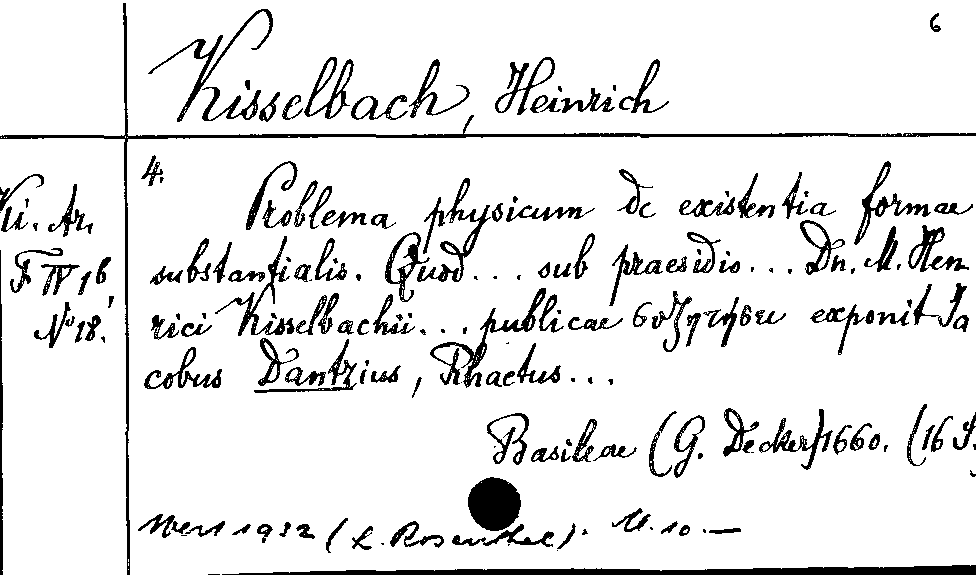 6
Kisselbach, Heinrich
4.
Ki. Ar.
F IV 16,
No 18.
Problema physicum de existentia formae
substantialis. Quod... sub praesidio... Dn. M. Hen
rici Kisselbachii... publicae συζητήσει exponit Ja
cobus Dantzius, Rhaetus...
Basileae (G. Decker) 1660. (16 S.
1932 (L. Rosenthal). M. 10.—